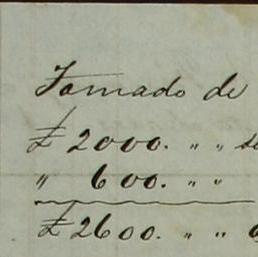 Tomado de
£ 2000. " " se
" 600. " "
£ 2600. " "